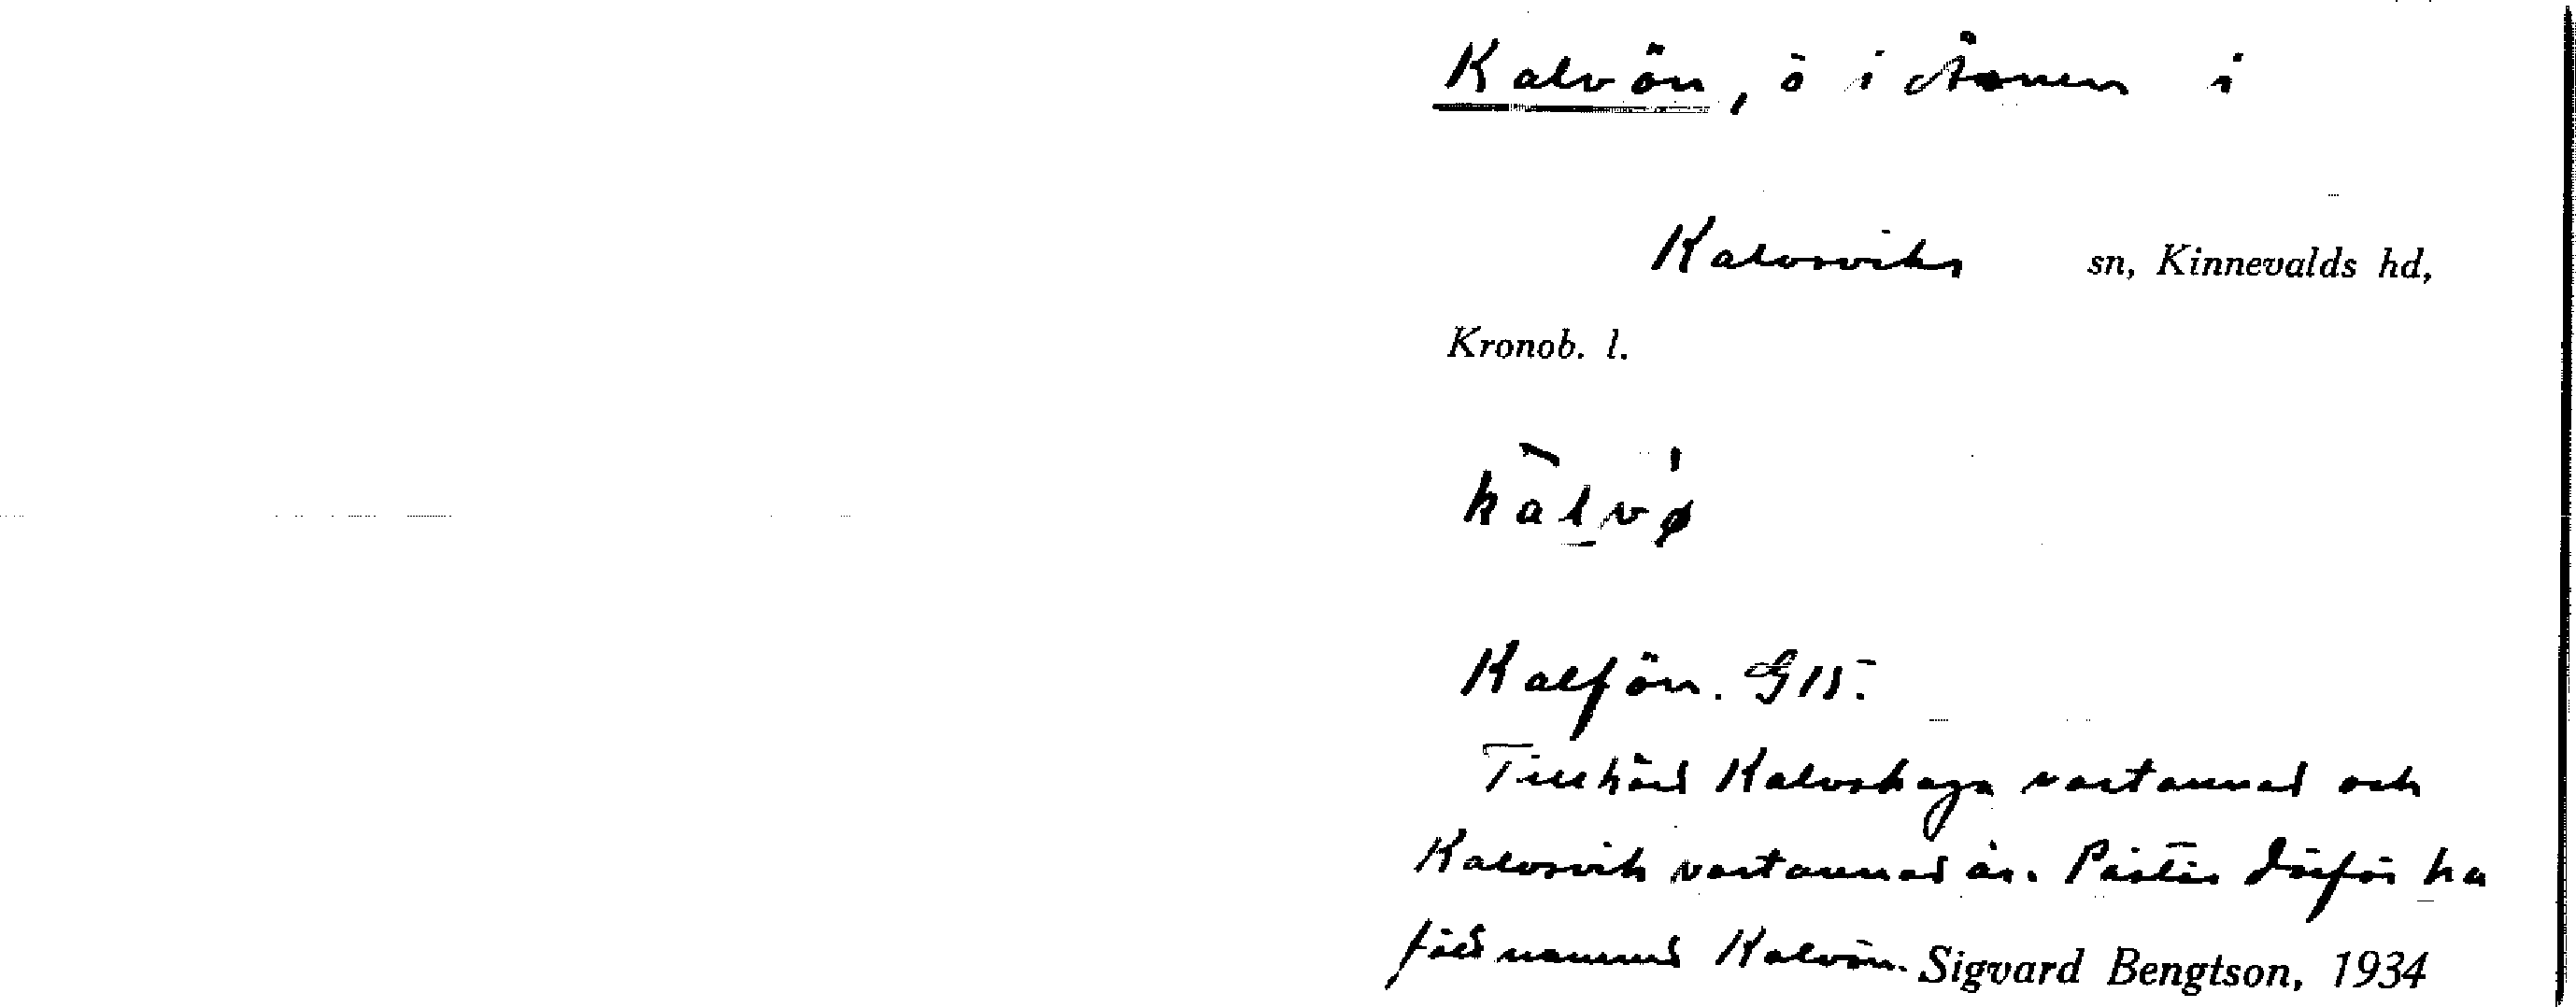 Kalvön, ö i Åsnen i
Kalvsviks sn, Kinnevalds hd,
Kronob. l.
kàlvø̍
Kalfön. G 15.
Tillhörd Kalvshaga vartannat och
Kalvsvik vartannat år. Påstås därför ha
fått namnet Kalvön. Sigvard Bengtson, 1934